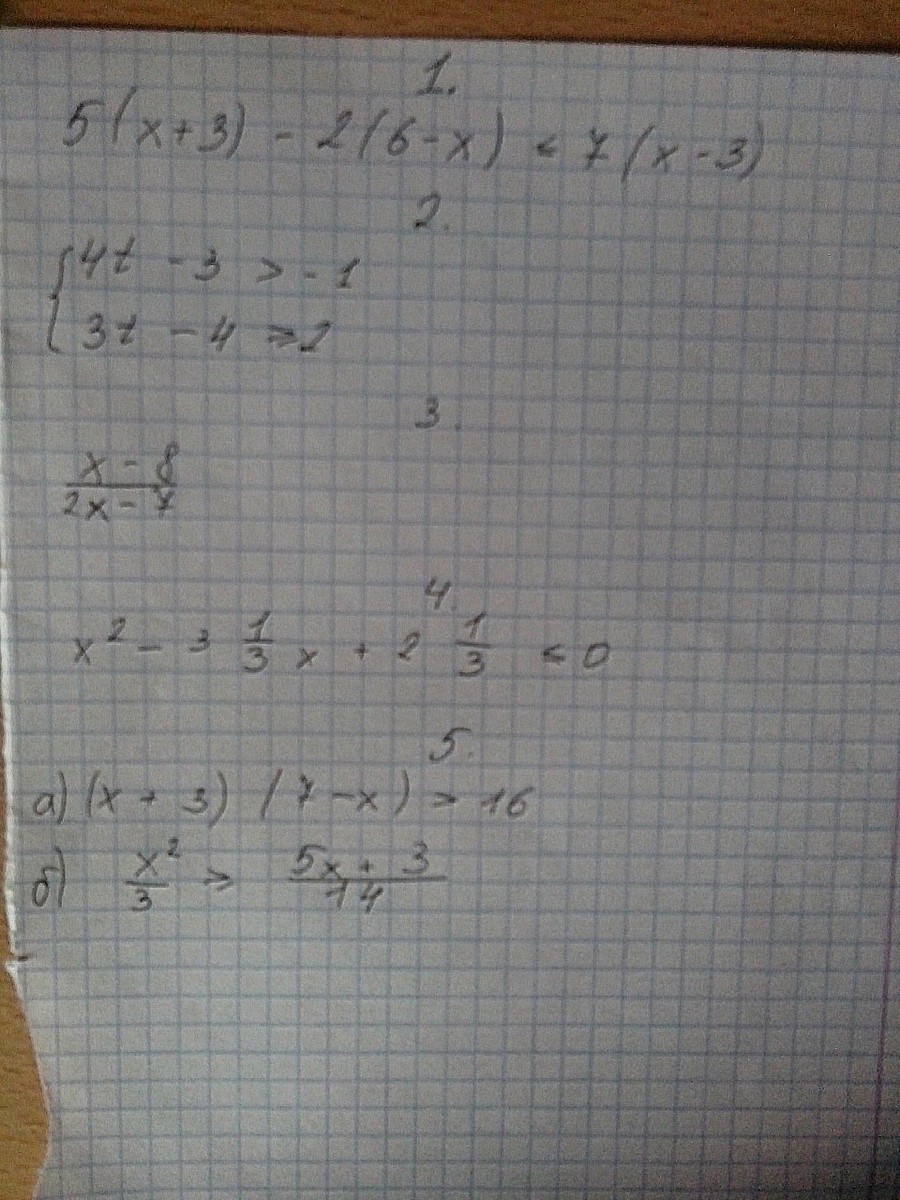 1.
5(x+3) - 2(6-x) < 7(x-3)
2.
{ 4t - 3 > -1
3t - 4 ⩾ 2
3.
x - 8
2x - 7
4.
x² - 3 1/3 x + 2 1/3 < 0
5.
а) (x + 3) (7 - x) > 16
б) x²/3 ⩾ 5x + 3/14